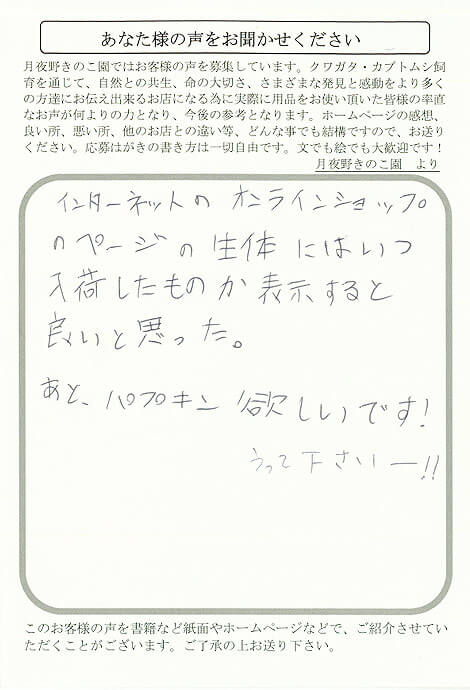 あなた様の声をお聞かせください
月夜野きのこ園ではお客様の声を募集しています。クワガタ・カブトムシ飼
育を通じて、自然との共生、命の大切さ、さまざまな発見と感動をより多く
の方達にお伝え出来るお店になる為に実際に用品をお使い頂いた皆様の率直
なお声が何よりの力となり、今後の参考となります。ホームページの感想、
良い所、悪い所、他のお店との違い等、どんな事でも結構ですので、お送り
ください。応募はがきの書き方は一切自由です。文でも絵でも大歓迎です！
月夜野きのこ園　より
インターネットの オンラインショップ
のページの生体にはいつ
入荷したものか表示すると
良いと思った。
あと、パプキン欲しいです！
うって下さいー!!
このお客様の声を書籍など紙面やホームページなどで、ご紹介させてい
ただくことがございます。ご了承の上お送り下さい。